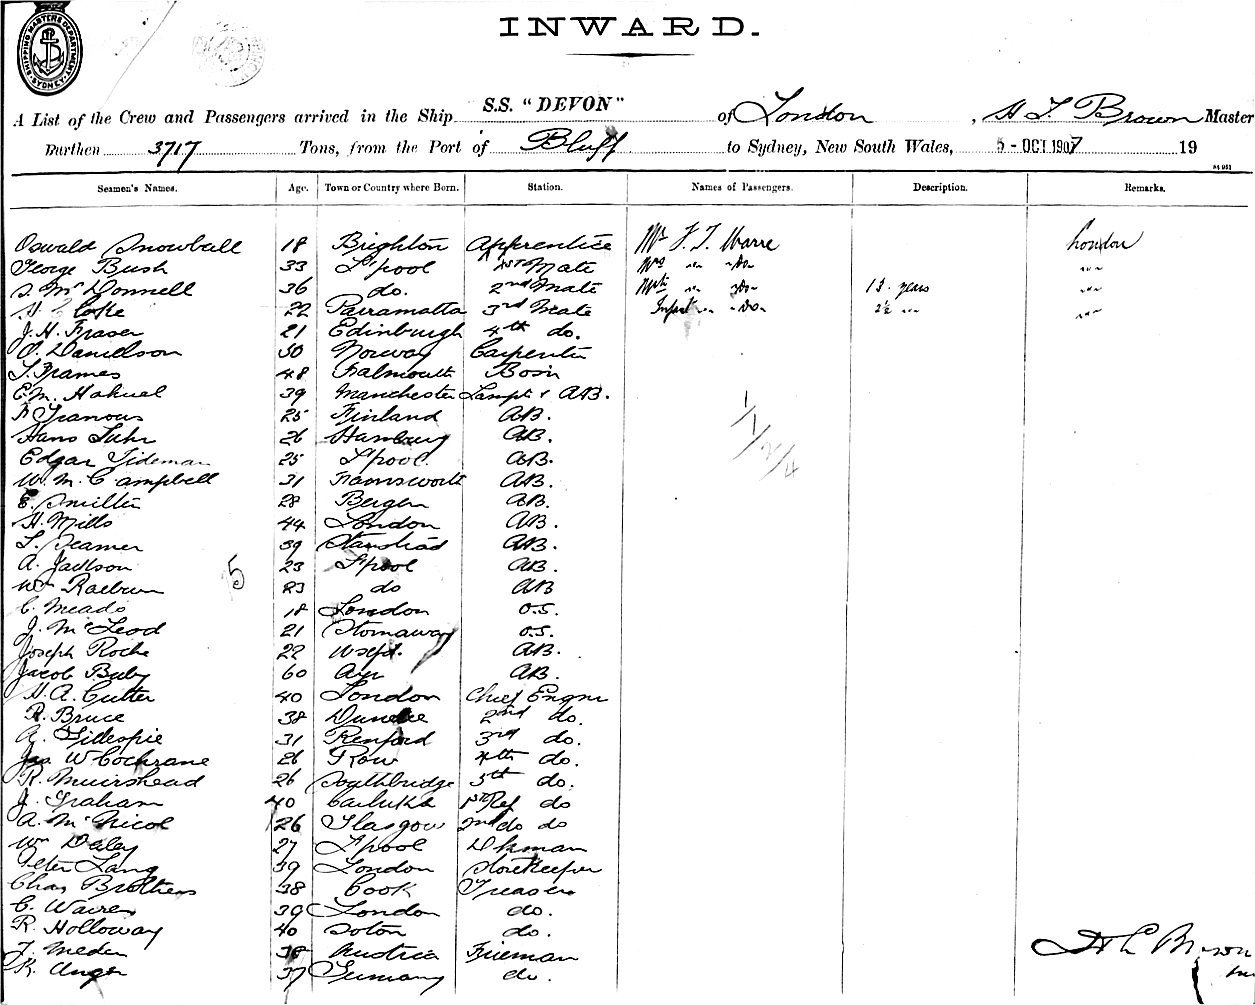 INWARD.
SHIPPING MASTERS DEPARTMENT SYDNEY
S.S. "DEVON"
A List of the Crew and Passengers arrived in the Ship of London, Brown Master
Burthen 3717 Tons, from the Port of Bluff to Sydney, New South Wales, 5 - OCT 1907 19
Seamen's Names. Age. Town or Country where Born. Station. Names of Passengers. Description. Remarks.
Oswald Snowball 18 Brighton Apprentice Mr F. T. Warre London
George Bush 33 L'pool 1st Mate Mrs " " do " "
S. McDonnell 36 do. 2nd Mate " do 13 years " "
H Coke 22 Parramatta 3rd Mate Infant " " do 2½ " " "
J. H. Fraser 21 Edinburgh 4th do.
O. Danielson 30 Norway Carpenter
T. Frames 48 Falmouth Bosn
E. M. 39 Manchester Lampt & AB.
25 Finland AB.
Hans Luhr 26 Hamburg AB.
1/1/2/4
Edgar Tideman 25 L'pool. AB.
W. M. Campbell 31 AB.
28 Bergen AB.
H. Mills 44 London AB.
39 AB.
A. Jackson 23 L'pool AB.
5
Wm Raeburn 23 do AB
C. Meads 18 London O.S.
J. McLeod 21 Stornaway O.S.
Joseph Roche 22 AB.
Jacob 60 Ayr AB.
H. A. Cutter 40 London Chief Engnr
R. Bruce 38 Dundee 2nd do.
A. Gillespie 31 3rd do.
Jas W Cochrane 26 Row 4th do.
R. Muirshead 26 Southbridge 5th do.
J. Graham 40 1st Ref do
A. McNicol 26 Glasgow 2nd do do
Wm Daley 27 L'pool Dkman
Peter Lang 39 London Storekeeper
Chas Brothers 38 Cook Greaser
C. Warren 39 London do.
R. Holloway 40 Soton do.
38 Austria Fireman
K. Unger 37 Germany do.
Brown